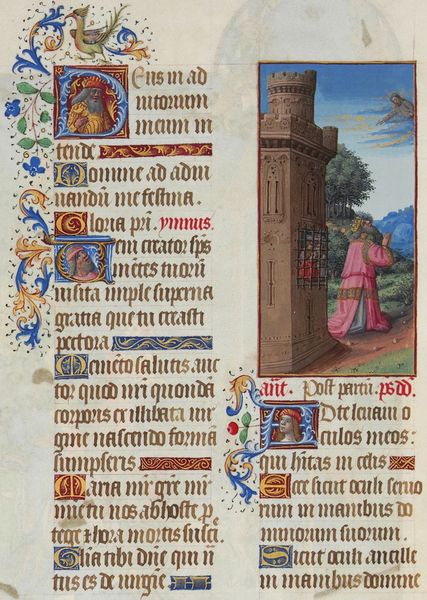 Deus in ad
iutorium
meum in
tende
Domine ad adiu
uandū me festina.
Gloria pri. ymnus.
Ueni creator sps
mētes tuorū
uisita imple superna
gracia que tu creasti
pectora
Memēto salutis auc
tor quod nri quondā
corporis ex illibata uir
gine nascendo formā
sumpseris
Maria mr̄ grē mr̄
mie tu nos ab hoste p
tege & hora mortis susci.
Glia tibi dn̄e qui n
tus es de uirgīe
Ant. Post partū. ps dd.
Ad te leuaui o
culos meos:
qui hītas in celis
Ecce sicut oculi seruo
rum in manibus do
minorum suorum.
Sicut oculi ancille
in manibus domine